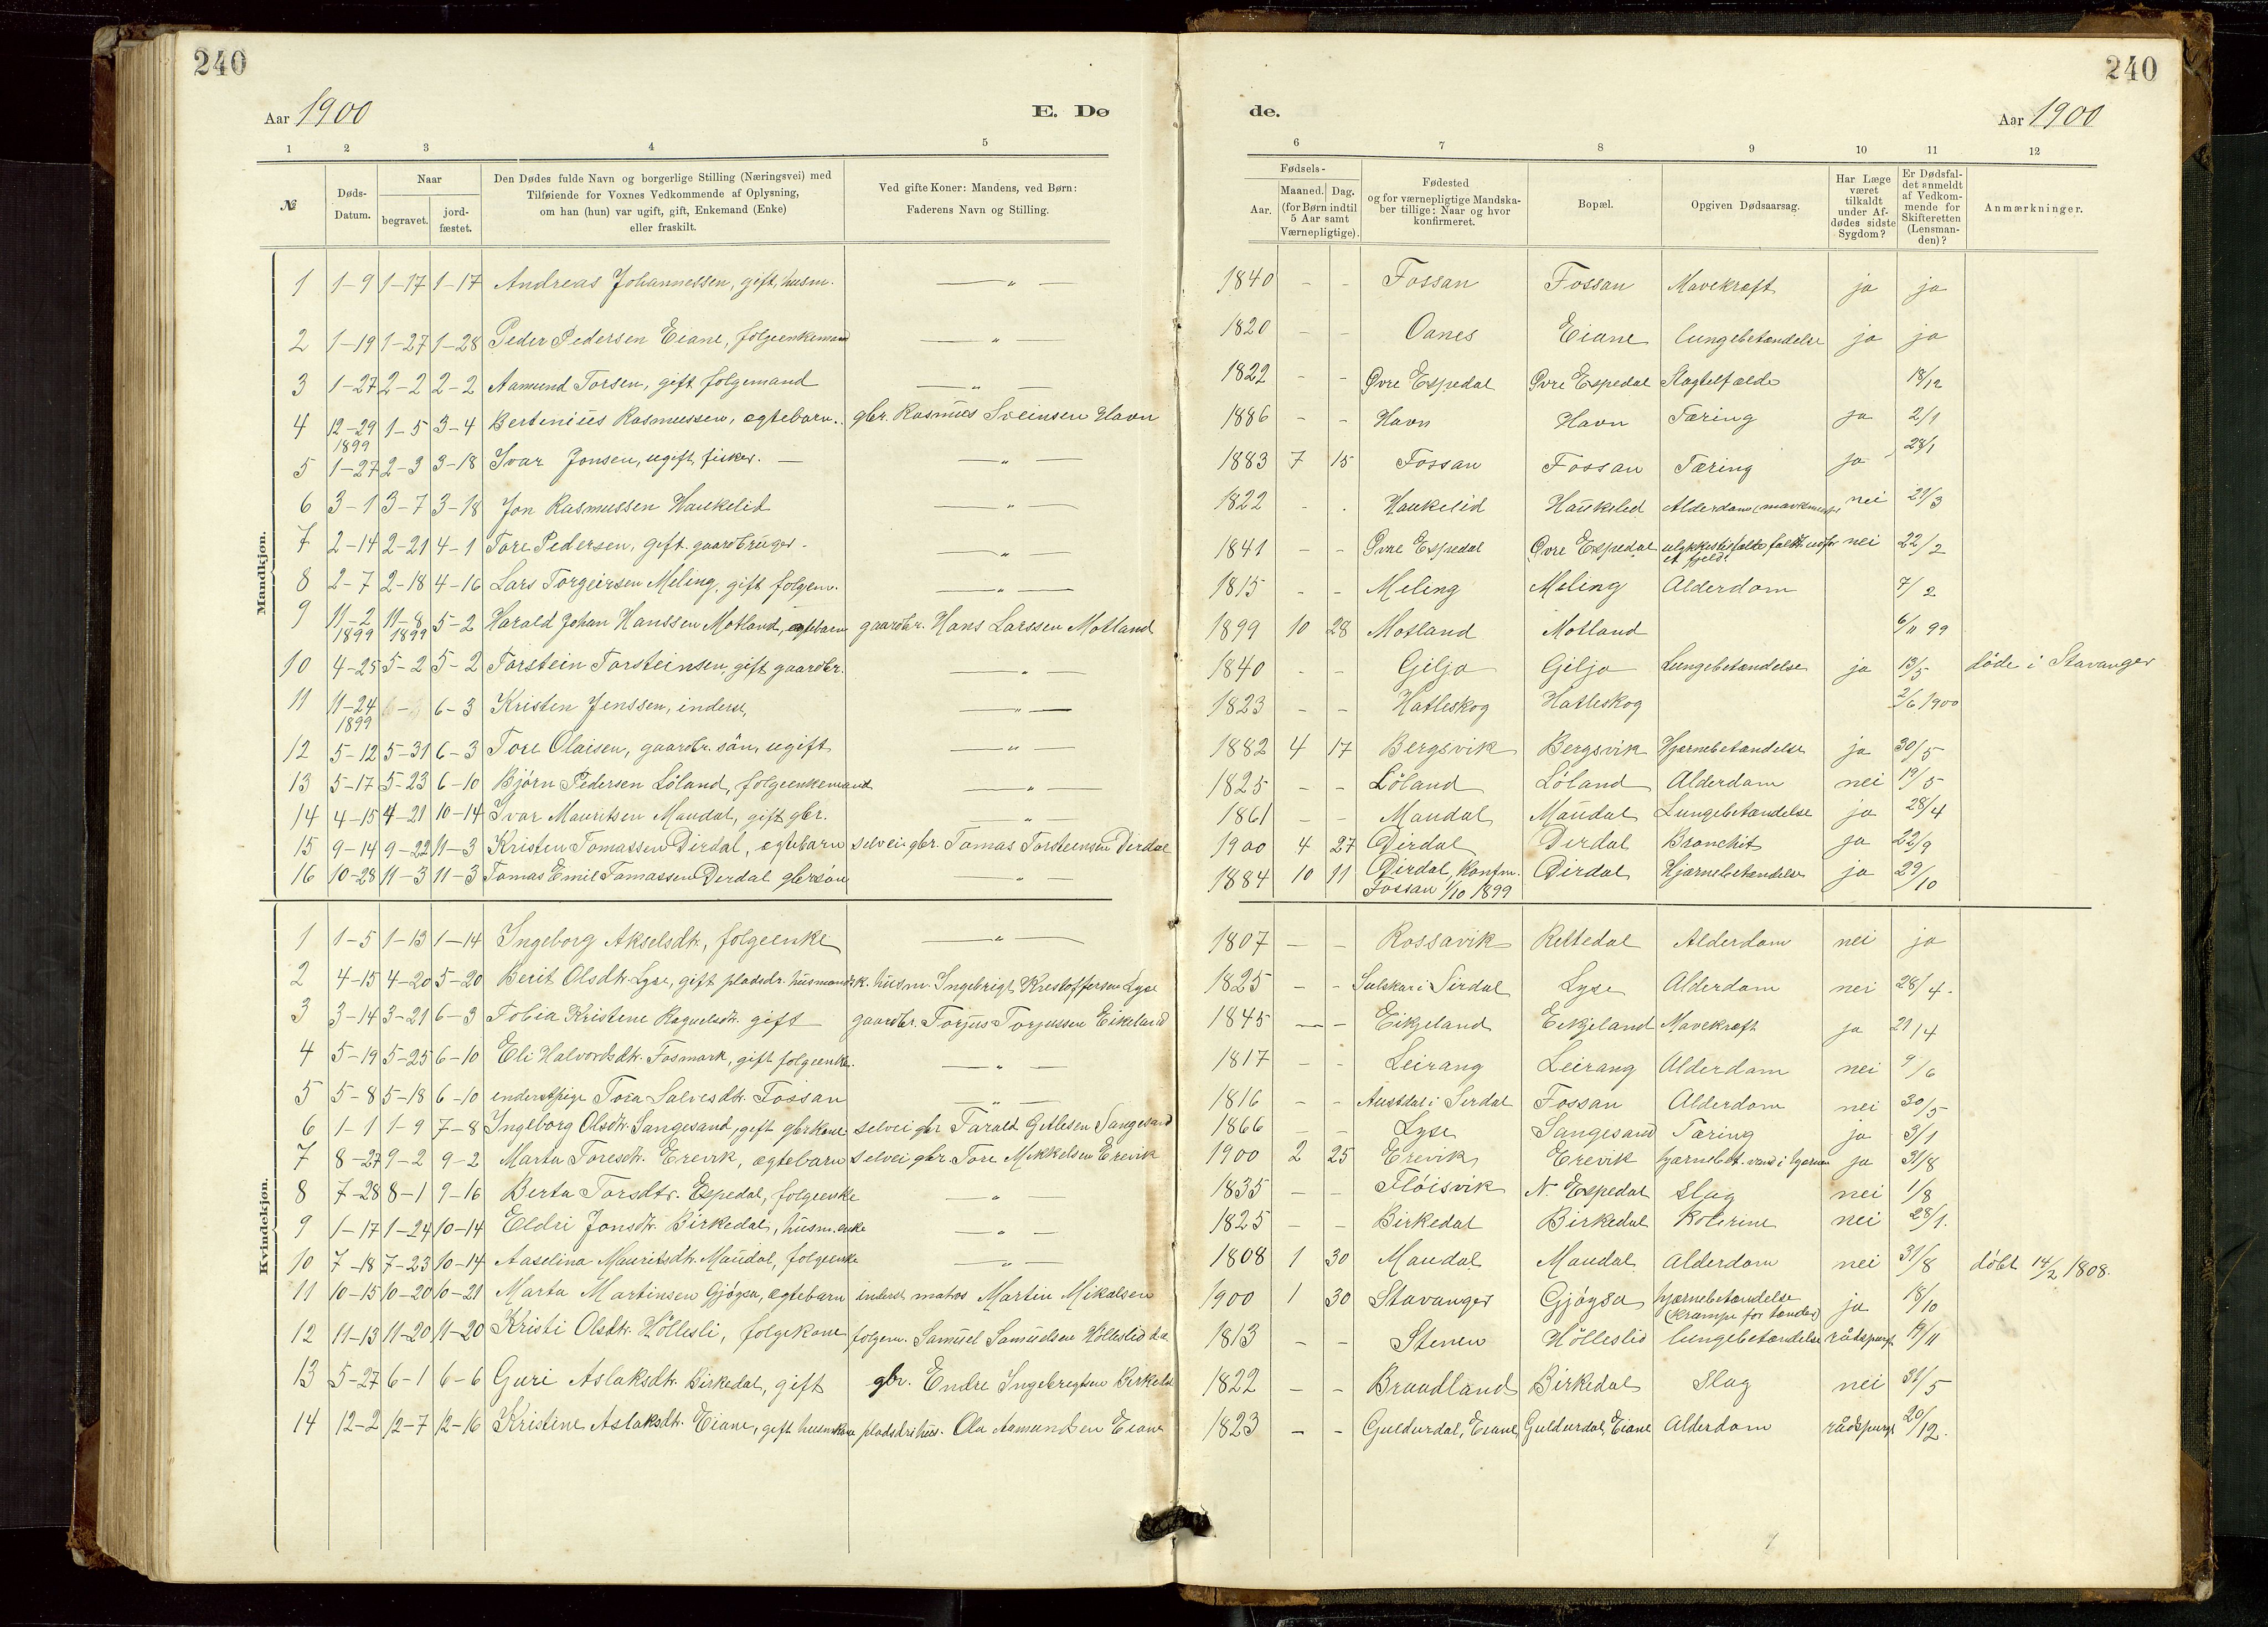 240
240
Aar 1900
E. Dø
de.
Aar 1900
1 2 3 4 5
6 7 8 9 10 11 12
№
Døds-Datum.
Naar
begravet.
jord-fæstet.
Den Dødes fulde Navn og borgerlige Stilling (Næringsvei) med
Tilføiende for Voxnes Vedkommende af Oplysning,
om han (hun) var ugift, gift, Enkemand (Enke)
eller fraskilt.
Ved gifte Koner: Mandens, ved Børn:
Faderens Navn og Stilling.
Fødsels-
Aar.
Maaned. Dag.
(for Børn indtil
5 Aar samt
Værnepligtige).
Fødested
og for værnepligtige Mandska-
ber tillige: Naar og hvor
konfirmeret.
Bopæl.
Opgiven Dødsaarsag.
Har Læge
været
tilkaldt
under Af-
dødes sidste
Sygdom?
Er Dødsfal-
det anmeldt
af Vedkom-
mende for
Skifteretten
(Lensman-
den)?
Anmærkninger.
Mandkjøn.
1 1-9 1-17 1-17 Andreas Johannessen, gift, husm. — " — 1840 - - Fossan Fossan Mavekræft ja ja
2 1-19 1-27 1-28 Peder Pedersen Eiane, folgeenkemand — " — 1820 - - Oanes Eiane lungebetændelse ja ja
3 1-27 2-2 2-2 Aamund Torsen, gift folgemand — " — 1822 - - Øvre Espedal Øvre Espedal Slagtilfælde 18/12
4 12-29 1899 1-5 3-4 Bertenius Rasmussen, egtebarn. gbr. Rasmus Sveinsen Havn 1886 - - Havn Havn Tæring ja 2/1
5 1-27 2-3 3-18 Ivar Jonsen, ugift, fisker. — — " — 1883 7 15 Fossan Fossan Tæring ja 28/1
6 3-1 3-7 3-18 Jon Rasmussen Haukelid — " — 1822 - - Haukelid Haukelid Alderdom nei 21/3
7 2-14 2-21 4-1 Tore Pedersen, gift gaardbruger. — " — 1841 - - Øvre Espedal Øvre Espedal ulykkestilfælde faldt udfor et fjeld. nei 22/2
8 2-7 2-18 4-16 Lars Torgeirsen Meling, gift folgem. — " — 1815 - - Meling Meling Alderdom 7/2
9 11-2 1899 11-8 1899 5-2 Harald Johan Hanssen Motland, egtebarn gaardbr. Hans Larssen Motland 1899 10 28 Motland Motland 6/11 99
10 4-25 5-2 5-2 Torstein Torsteinsen, gift gaardbr. — " — 1840 - - Gilja Gilja Lungebetændelse ja 13/5 døde i Stavanger
11 11-24 1899 6-3 Kristen Jenssen, inderst, — " — 1823 - - Hatleskog Hatleskog 2/6 1900
12 5-12 5-31 6-3 Tore Olaisen, gaardbr. søn, ugift — " — 1882 4 17 Bergsvik Bergsvik Hjernebetændelse ja 30/5
13 5-17 5-23 6-10 Bjørn Pedersen Löland, folgeenkemand — " — 1825 - - Löland Löland Alderdom nei 19/5
14 4-15 4-21 10-14 Ivar Mauritsen Maudal, gift gbr. — " — 1861 - - Maudal Maudal Lungebetændelse ja 28/4
15 9-14 9-22 11-3 Kristen Tomassen Dirdal, egtebarn selvei gbr. Tomas Torsteinsen Dirdal 1900 4 27 Dirdal Dirdal Bronchit ja 22/9
16 10-28 11-3 11-3 Tomas Emil Tomassen Dirdal gbrsøn — " — 1884 10 11 Dirdal, konfm. Fossan 1/10 1899 Dirdal Hjernebetændelse ja 29/10
Kvindekjøn.
1 1-5 1-13 1-14 Ingeborg Akselsdtr, folgeenke — " — 1807 - - Rossavik Rettedal Alderdom nei ja
2 4-15 4-20 5-20 Berit Olsdtr. Lyse, gift pladsdr. husmandsk. husm. Ingebrigt Kristoffersen Lyse 1825 - - Sulskar i Sirdal Lyse Alderdom nei 28/4.
3 3-14 3-21 6-3 Tobia Kristene Raguelsdtr. gift gaardbr. Torjus Torjussen Eikeland 1845 - - Eikjeland Eikjeland Mavekræft ja 21/4
4 5-19 5-25 6-10 Eli Halvordsdtr. Fosmark, gift folgeenke. — " — 1817 - - Leirang Leirang Alderdom nei 9/6
5 5-8 5-18 6-10 inderstpige Tora Salvesdtr. Fossan — " — 1816 - - Austdal i Sirdal Fossan Alderdom nei 30/5
6 1-1 1-9 7-8 Ingeborg Olsdtr. Sangesand, gift gbrkone selvei gbr Tarald Getlesen Sangesand 1866 - - Lyse Sangesand Tæring ja 3/1
7 8-27 9-2 9-2 Marta Toresdtr. Erevik, egtebarn selvei gbr. Tore Mikkelsen Erevik 1900 2 25 Erevik Erevik hjernebt. vand i hjernen ja 31/8
8 7-28 8-1 9-16 Berta Torsdtr. Espedal, folgeenke — " — 1835 - - Fløisvik N. Espedal Slag nei 1/8
9 1-17 1-24 10-14 Eldri Jonsdtr. Birkedal, husm.enke — " — 1825 - - Birkedal Birkedal Kolerine nei 28/1.
10 7-18 7-23 10-14 Aaselina Mauritsdtr. Maudal, folgeenke — " — 1808 1 30 Maudal Maudal Alderdom nei 31/8 döbt 14/2 1808.
11 10-15 10-20 10-21 Marta Martinsen Gjøgsa, egtebarn inderst matros Martin Mikalsen 1900 1 30 Stavanger Gjøgsa hjernebetændelse (krampe for tænder) ja 18/10
12 11-13 11-20 11-20 Kristi Olsdtr. Höllesli, folgekone folgem. Samuel Samuelsen Höllesli 1813 - - Stenen Höllesli lungebetændelse rådspurgt 19/11
13 5-27 6-1 6-6 Guri Aslaksdtr. Birkedal, gift gbr. Endre Ingebregtsen Birkedal 1822 - - Braadland Birkedal Slag nei 31/5
14 12-2 12-7 12-16 Kristine Aslaksdtr. Eiane, gift husmkone pladsdr. hus. Ola Aamundsen Eiane 1823 - - Guldurdal, Eiane Guldurdal, Eiane Alderdom rådspurgt 20/12.